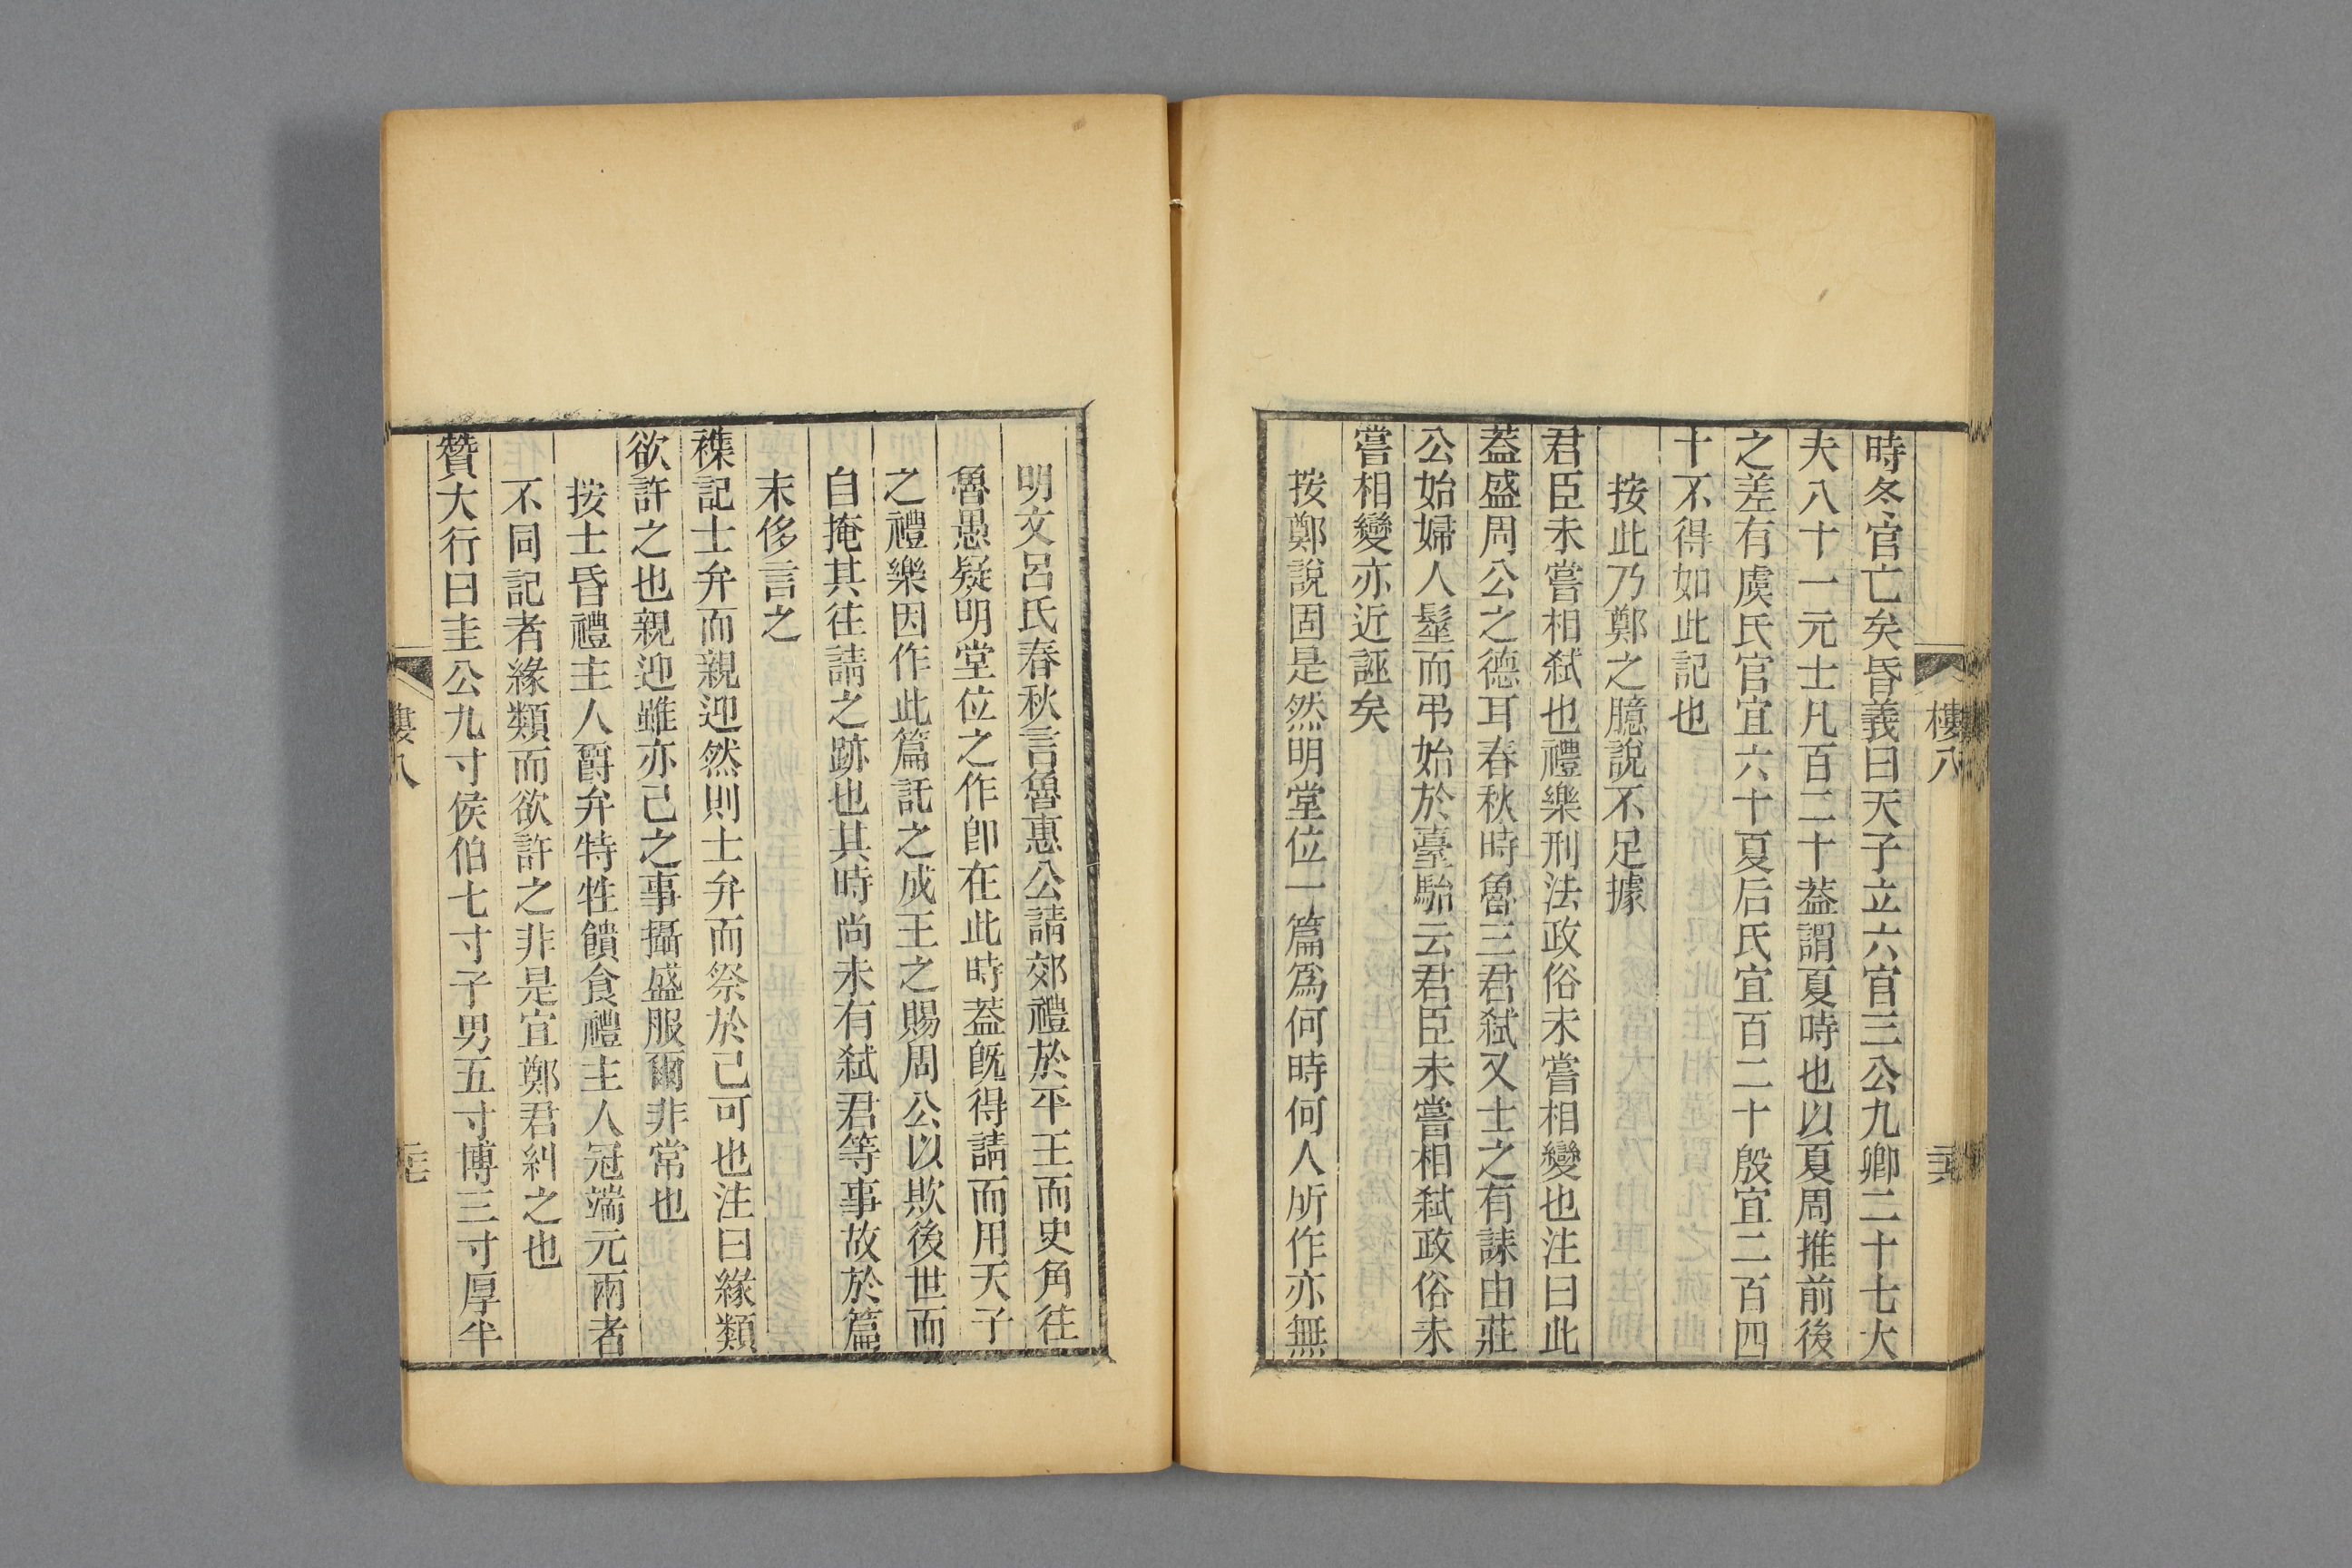 時冬官亡矣昏義曰天子立六官三公九卿二十七大
夫八十一元士凡百二十葢謂夏時也以夏周推前後
之差有虞氏官宜六十夏后氏宜百二十殷宜二百四
十不得如此記也
按此乃鄭之臆說不足據
君臣未嘗相弑也禮樂刑法政俗未嘗相變也注曰此
葢盛周公之德耳春秋時魯三君弑又士之有誄由莊
公始婦人髽而弔始於臺駘云君臣未嘗相弑政俗未
嘗相變亦近誣矣
按鄭說固是然明堂位一篇爲何時何人所作亦無
樓八
明文呂氏春秋言魯惠公請郊禮於平王而史角往
魯愚疑明堂位之作卽在此時葢旣得請而用天子
之禮樂因作此篇託之成王之賜周公以欺後世而
自掩其往請之跡也其時尚未有弑君等事故於篇
末侈言之
襍記士弁而親迎然則士弁而祭於己可也注曰緣類
欲許之也親迎雖亦己之事攝盛服爾非常也
按士昏禮主人爵弁特牲饋食禮主人冠端元兩者
不同記者緣類而欲許之非是宜鄭君糾之也
贊大行曰圭公九寸侯伯七寸子男五寸博三寸厚半
樓八